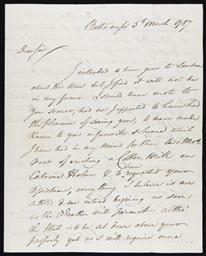 5th March 1787
Dear Sir,
I intended to have gone to London
about this time but I find it will not be
in my power. I should have wrote to
you sooner, had not I expected to have had
the pleasure of seeing you, to have made
known to you a favorite scheme which
I have had in my mind for these two
past of erecting a Cotton Mill on
Calverton & to request your
Assistance, everything I believe is now
settled & we intend begining as soon
as the Weather will permit altho'
the Mill is to be set down above your
property yet as it will require some